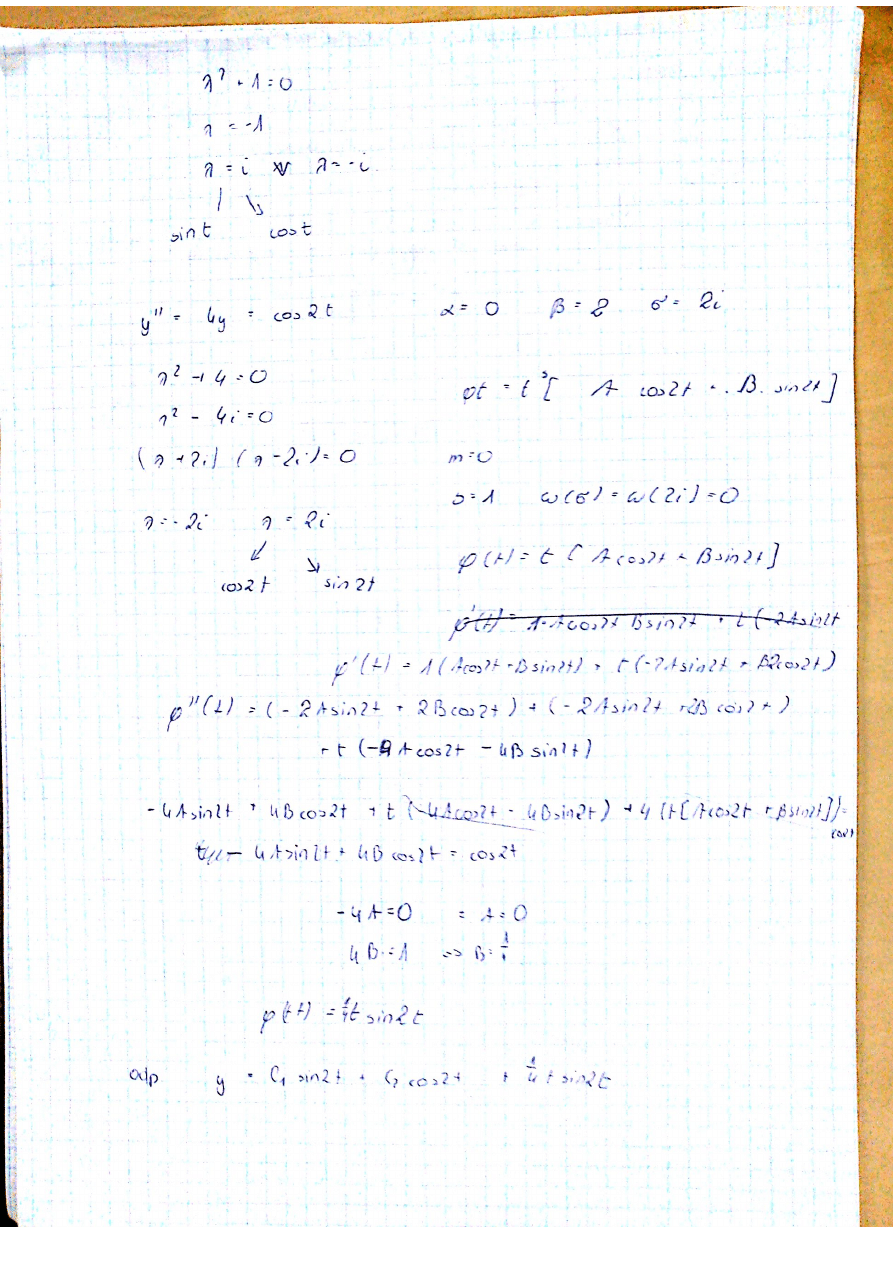 λ² + 1 = 0
λ = -1
λ = i ∨ λ = -i
sin t cos t
y'' = 4y = cos2t α = 0 β = 2 σ = 2i
λ² + 4 = 0
φt = t^s [ A cos2t + B sin2t]
λ² - 4i = 0
(λ + 2i) (λ - 2i) = 0 m = 0
s = 1 ω(σ) = ω(2i) = 0
λ = -2i λ = 2i
φ(t) = t [ A cos2t + B sin2t]
cos2t sin2t
φ'(t) = 1·Acos2t Bsin2t + t(-2Asin2t
φ'(t) = 1(Acos2t + Bsin2t) + t(-2Asin2t + B2cos2t)
φ''(t) = (-2Asin2t + 2Bcos2t) + (-2Asin2t + 2B cos2t)
+ t (-4Acos2t - 4Bsin2t)
-4Asin2t + 4Bcos2t + t(-4Acos2t - 4Bsin2t) + 4 (t[Acos2t + Bsin2t]) =
cos2t
- 4Asin2t + 4Bcos2t = cos2t
-4A = 0 = A = 0
4B = 1 => B =
φ(t) = 1/4 t sin2t
odp y = C₁ sin2t + C₂ cos2t + 1/4 t sin2t